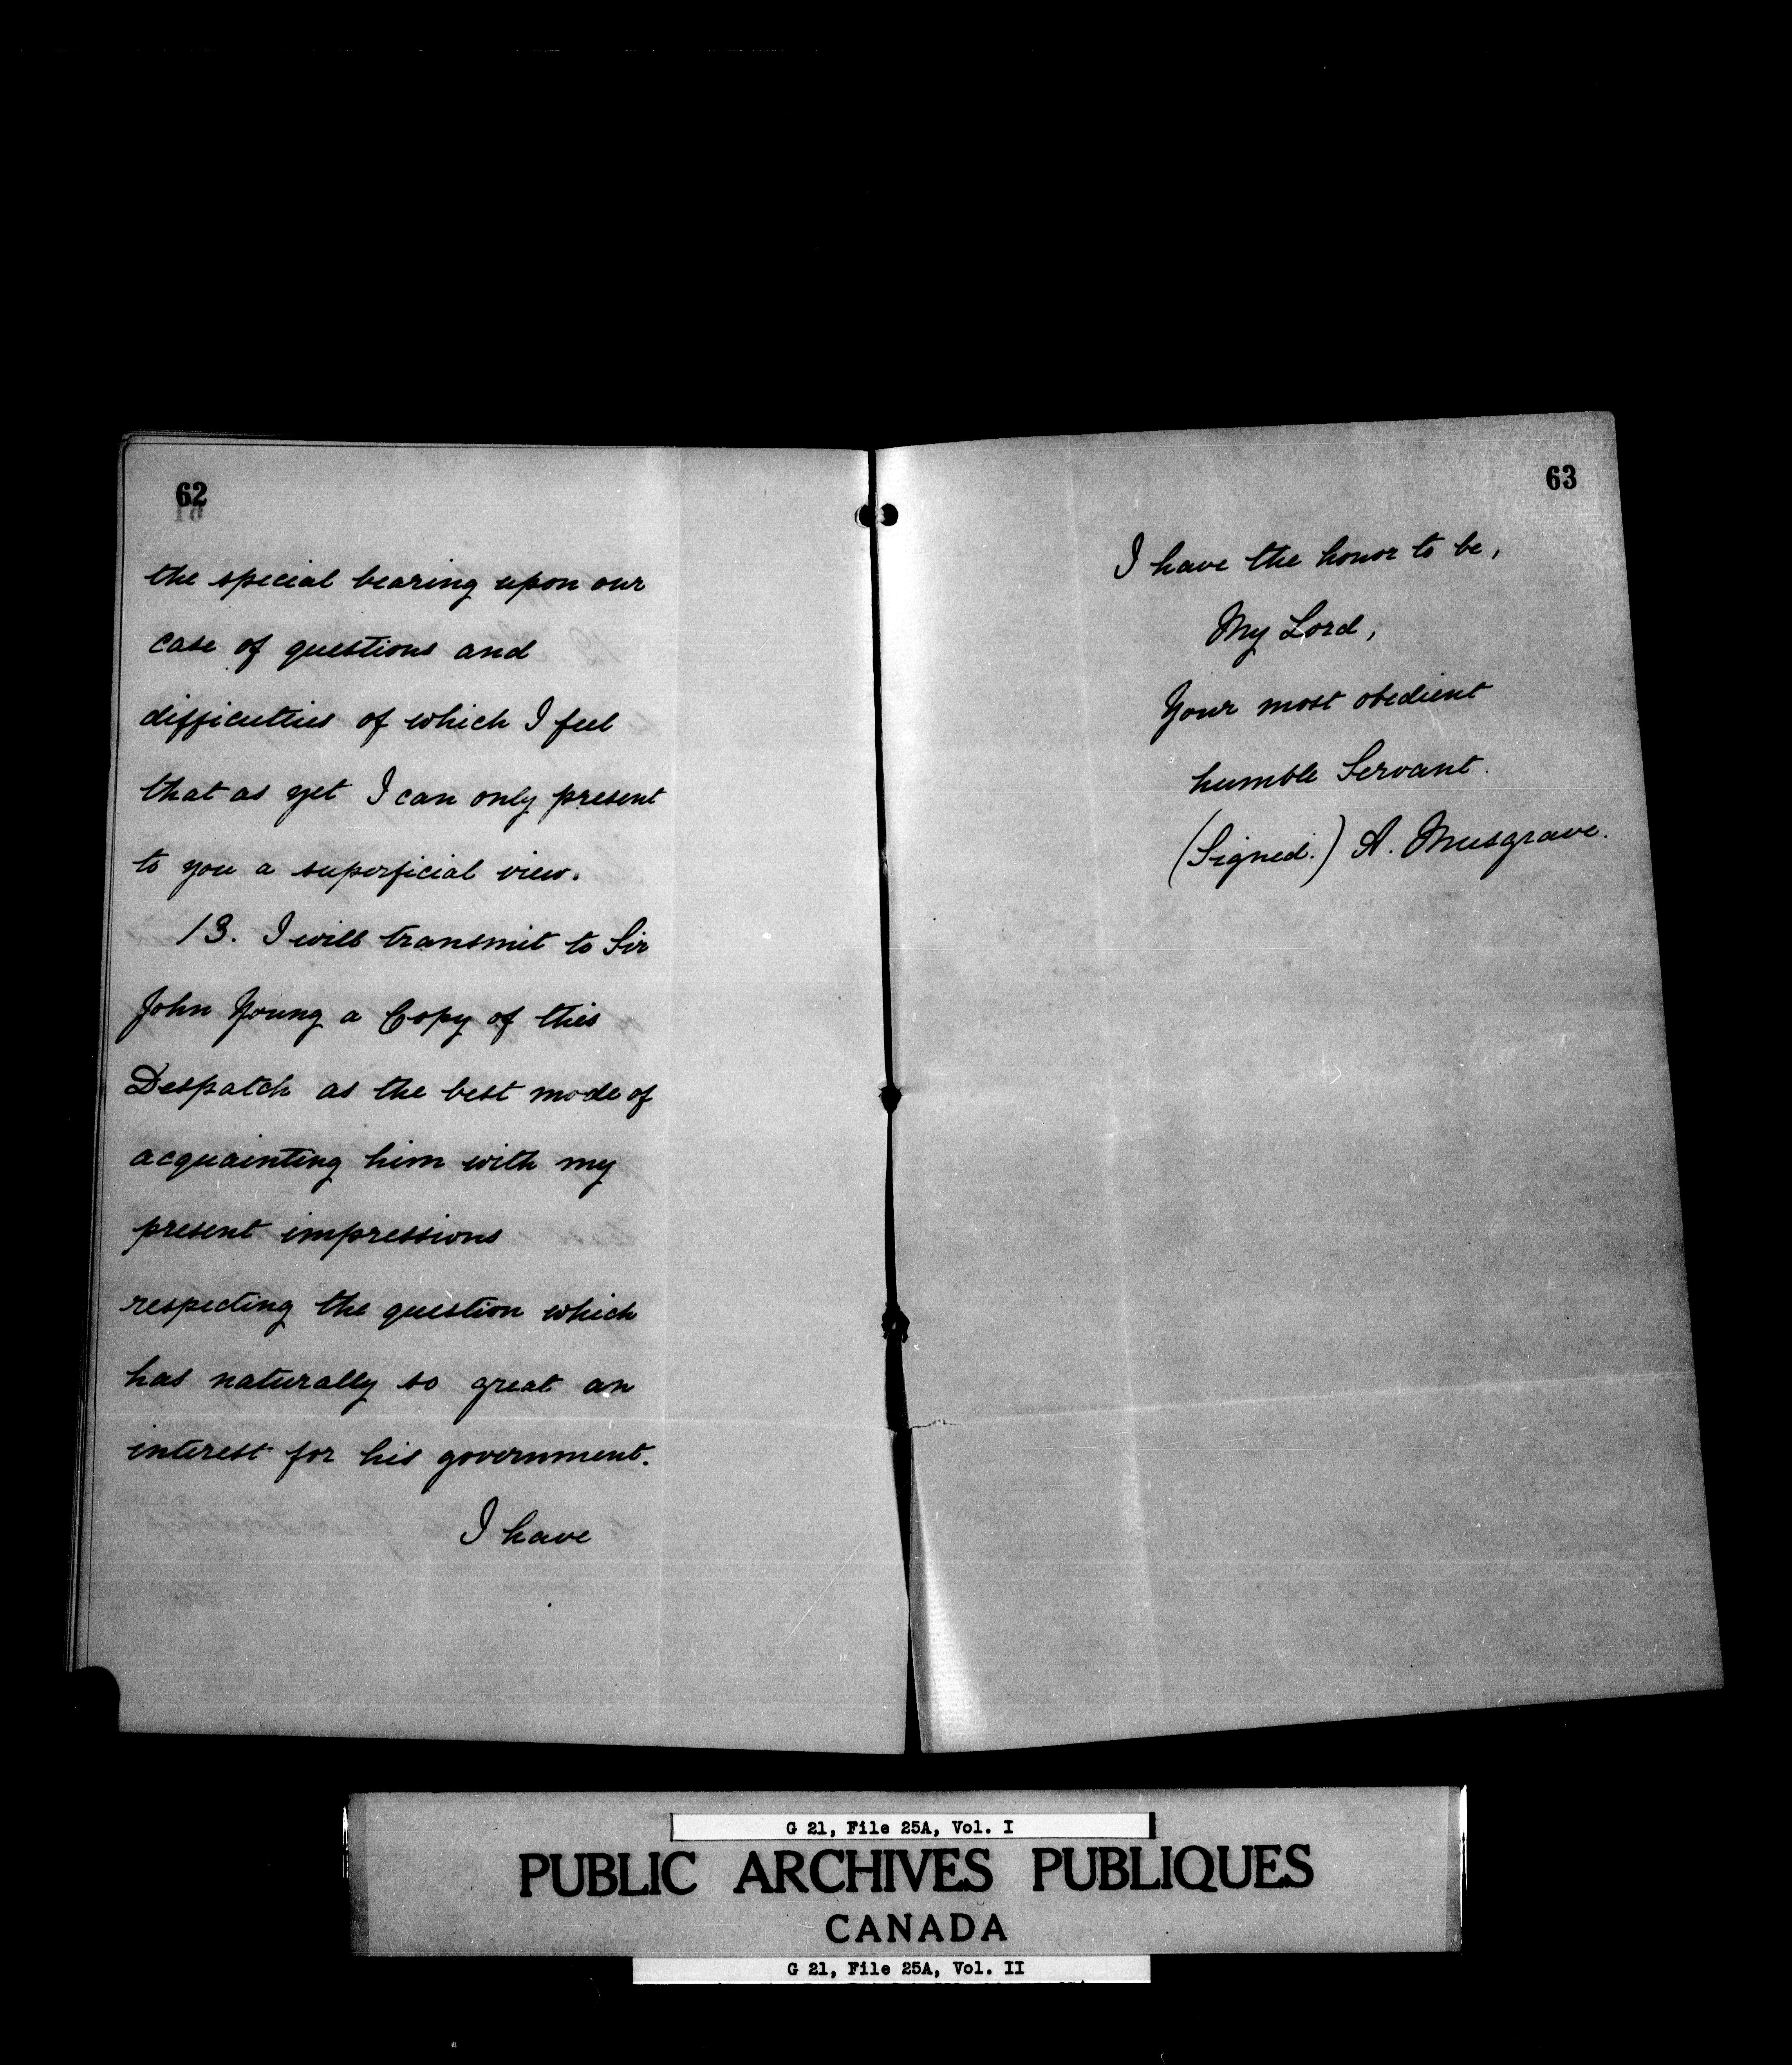 62
the special bearing upon our
case of questions and
difficulties of which I feel
that as yet I can only present
to you a superficial view.
13. I will transmit to Sir
John Young a Copy of this
Despatch as the best mode of
acquainting him with my
present impressions
respecting the question which
has naturally so great an
interest for his government.
I have
63
I have the honor to be,
My Lord,
Your most obedient
humble Servant.
(Signed.) A. Musgrave.
G 21, File 25A, Vol. I
PUBLIC ARCHIVES PUBLIQUES
CANADA
G 21, File 25A, Vol. II